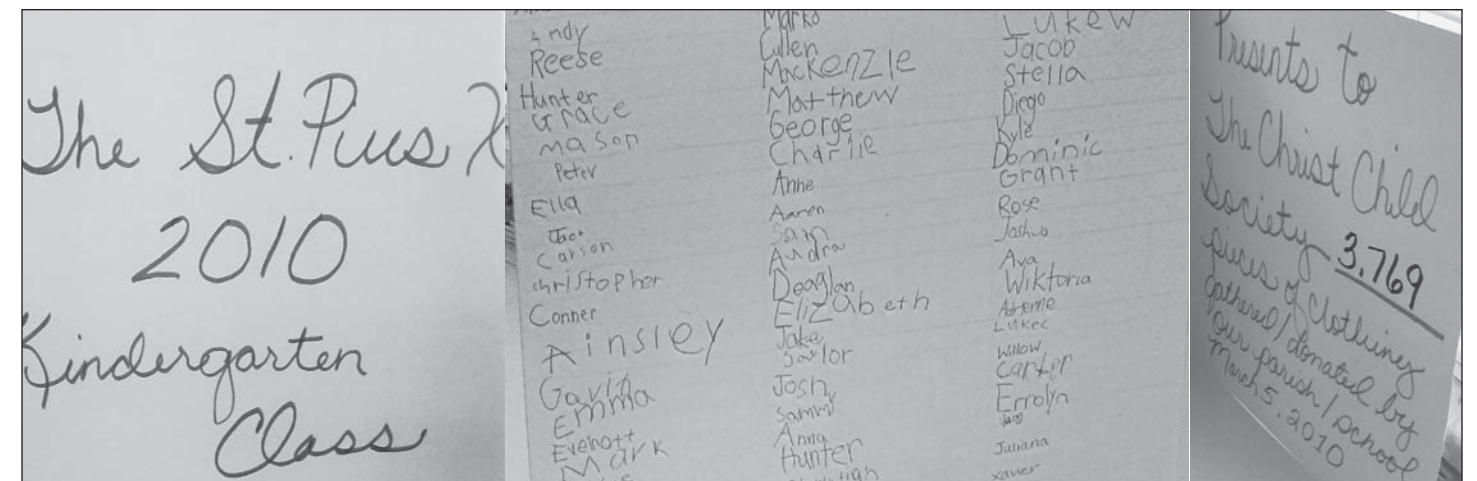 The St. Pius X
2010
Kindergarten
Class
Andy
Reese
Hunter
Grace
mason
Peter
Ella
Jack
Carson
christopher
Conner
Ainsley
Gavin
Emma
Evehott
Mark
Marko
Cullen
Mackenzie
Matthew
George
Charlie
Anne
Aaron
Sam
Audra
Deaglan
Elizabeth
Jake
Saylor
Josh
Sammy
Anna
Hunter
Luke W
Jacob
Stella
Diego
Kyle
Dominic
Grant
Rose
Joshua
Ava
Wiktoria
Adrienne
Luke C
Willow
Carter
Errolyn
Juliana
xavier
Presents to
The Christ Child
Society 3.769
pieces of clothing
gathered/donated by
our parish/school
March 5, 2010